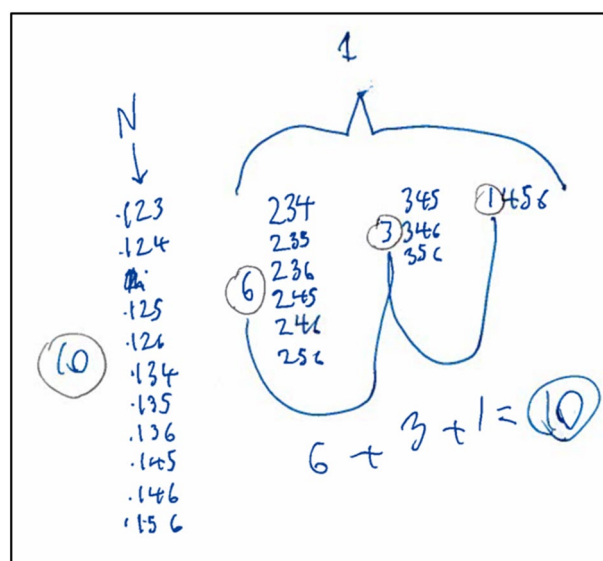 1
N
123
124
125
126
134
135
136
145
146
156
10
234
235
236
245
246
256
6
345
346
356
3
1 456
6 + 3 + 1 = 10